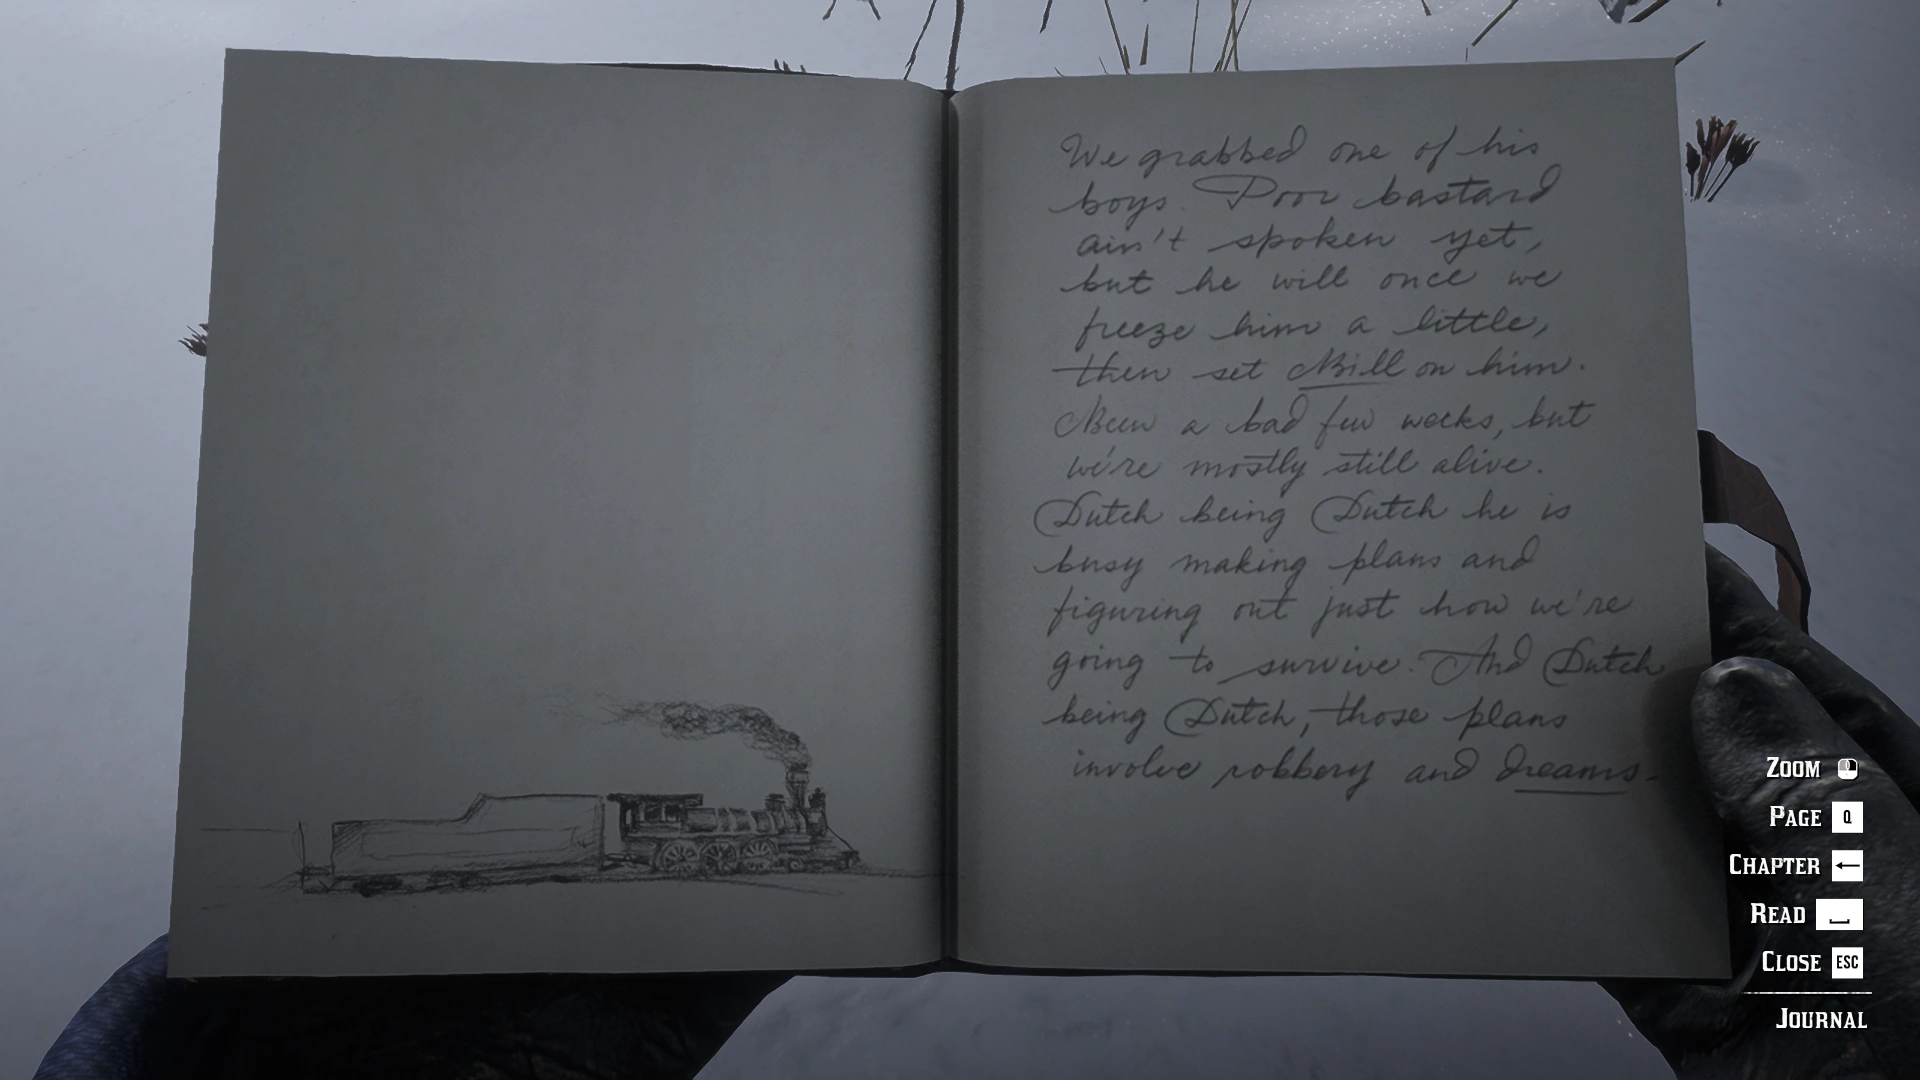 We grabbed one of his
boys. Poor bastard
ain't spoken yet,
but he will once we
freeze him a little,
then set Bill on him.
Been a bad few weeks, but
we're mostly still alive.
Dutch being Dutch he is
busy making plans and
figuring out just how we're
going to survive. And Dutch
being Dutch, those plans
involve robbery and dreams.
ZOOM
PAGE Q
CHAPTER ←
READ
CLOSE ESC
JOURNAL